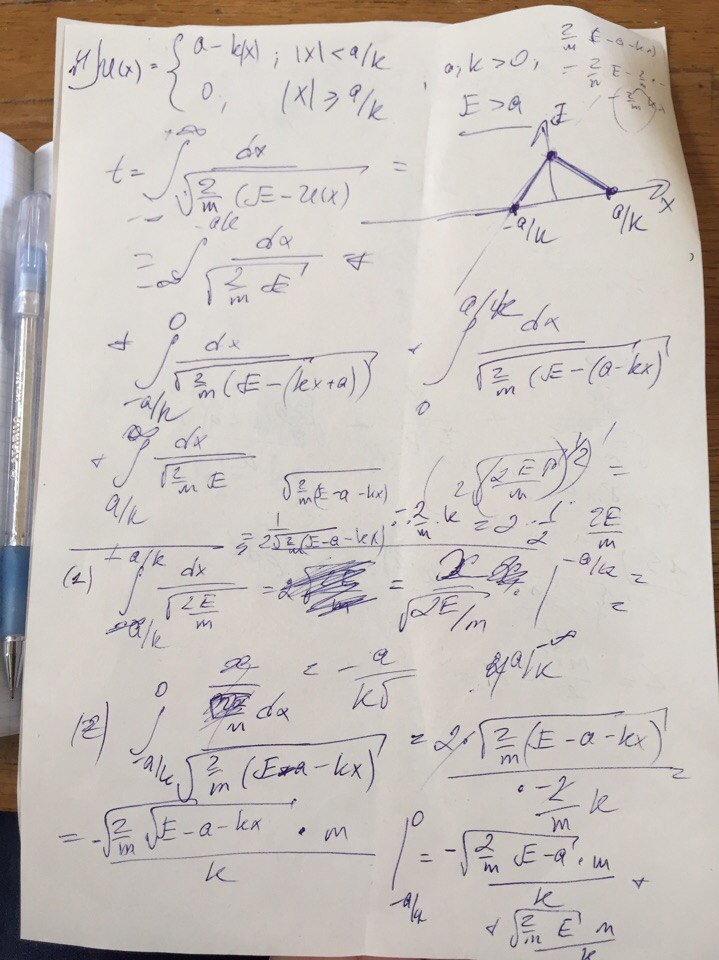 U(x) = { a - k|x| ; |x| < a/k
0, |x| ⩾ a/k
, a, k > 0,
E > a
2/m (E - a - kx)
= 2/m E -
E
-a/k a/k x
t = ∫ dx / √(2/m (E - U(x)) =
= ∫_{-∞}^{-a/k} dx / √(2/m E) +
+ ∫_{-a/k}^{0} dx / √(2/m (E - (kx + a))) + ∫_{0}^{a/k} dx / √(2/m (E - (a - kx)
+ ∫_{a/k}^{∞} dx / √(2/m E)
√(2/m (E - a - kx)
1 / 2√(2/m (E - a - kx)
2/m · k = 2 · 1/2 2E/m
(1) ∫ dx / √(2E/m) = = x / √(2E/m) | -a/k =
-∞
= - a / k√
(2) ∫_{-a/k}^{0} dx / √(2/m (E - a - kx) = 2 · √(2/m (E - a - kx) / · -2/m k =
= -√(2/m) √(E - a - kx) · m / k |_{-a/k}^{0} = -√(2/m E - a) · m / k +
+ √(2/m E) m / k